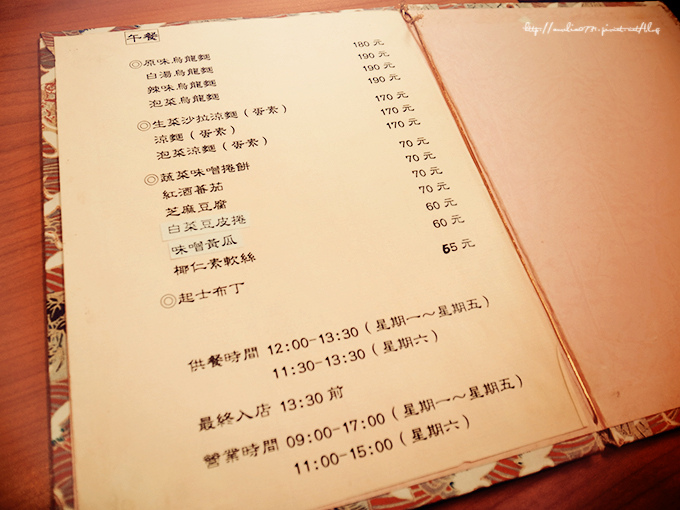 午餐
◎原味烏龍麵 180 元
白湯烏龍麵 190 元
辣味烏龍麵 190 元
泡菜烏龍麵 190 元
◎生菜沙拉涼麵（蛋素） 170 元
涼麵（蛋素） 170 元
泡菜涼麵（蛋素） 170 元
◎蔬菜味噌捲餅 70 元
紅酒蕃茄 70 元
芝麻豆腐 70 元
白菜豆皮捲 70 元
味噌黃瓜 60 元
椰仁素軟絲 60 元
◎起士布丁 55 元
供餐時間 12:00-13:30（星期一～星期五）
11:30-13:30（星期六）
最終入店 13:30 前
營業時間 09:00-17:00（星期一～星期五）
11:00-15:00（星期六）